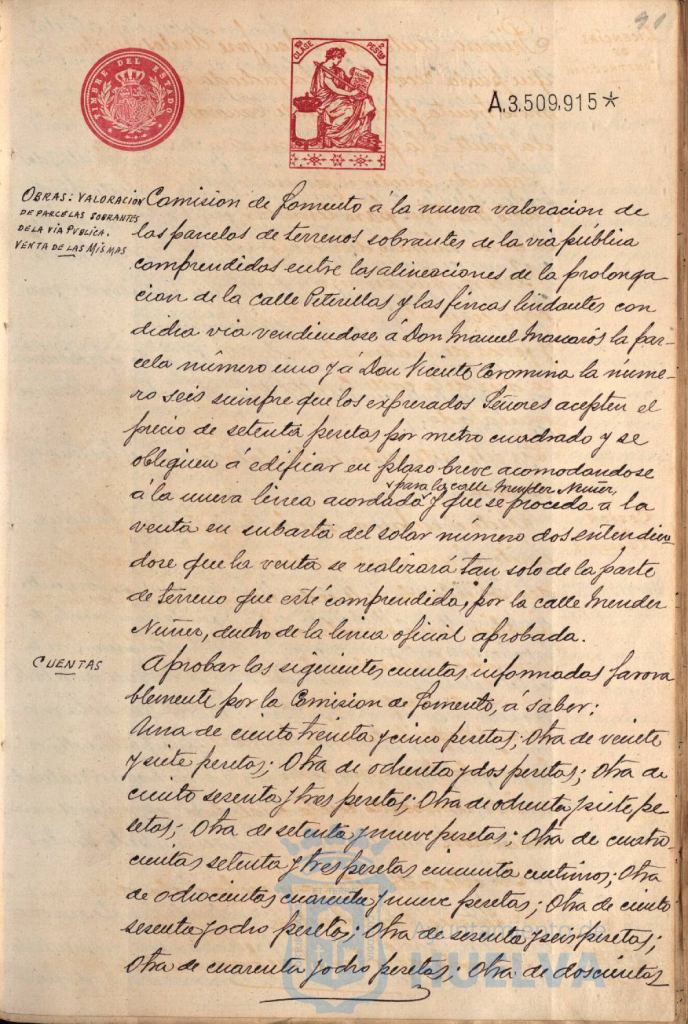 91
TIMBRE DEL ESTADO
CLASE 10ª PESETAS 2
A.3.509.915*
OBRAS: VALORACION
DE PARCELAS SOBRANTES
DE LA VIA PUBLICA.
VENTA DE LAS MISMAS
Comision de Fomento á la nueva valoracion de
las parcelas de terrenos sobrantes de la via pública
comprendidas entre las alineaciones de la prolonga
cion de la calle Peterillas y las fincas lindantes con
dicha via vendiendose á Don Manuel Mascarós la par-
cela número uno y á Don Vicente Coromina la núme-
ro seis siempre que los expresados Señores acepten el
precio de setenta pesetas por metro cuadrado y se
obliguen á edificar en plazo breve acomodandose
para la calle Mendez Nuñez,
á la nueva linea acordada y que se proceda á la
venta en subasta del solar número dos entendien-
dose que la venta se realizará tan solo de la parte
de terreno que esté comprendida, por la calle Mendez
Nuñez, dentro de la linea oficial aprobada.
CUENTAS
Aprobar las siguientes cuentas informadas favora
blemente por la Comision de Fomento, á saber:
Una de ciento treinta y cinco pesetas; Otra de veinte
y siete pesetas; Otra de ochenta y dos pesetas; Otra de
ciento sesenta y tres pesetas; Otra de ochenta y siete pe-
setas; Otra de setenta y nueve pesetas; Otra de cuatro
cientas setenta y tres pesetas cincuenta centimos; Otra
de ochocientas cuarenta y nueve pesetas; Otra de ciento
sesenta y ocho pesetas; Otra de sesenta y seis pesetas;
Otra de cuarenta y ocho pesetas; Otra de doscientas
HUELVA